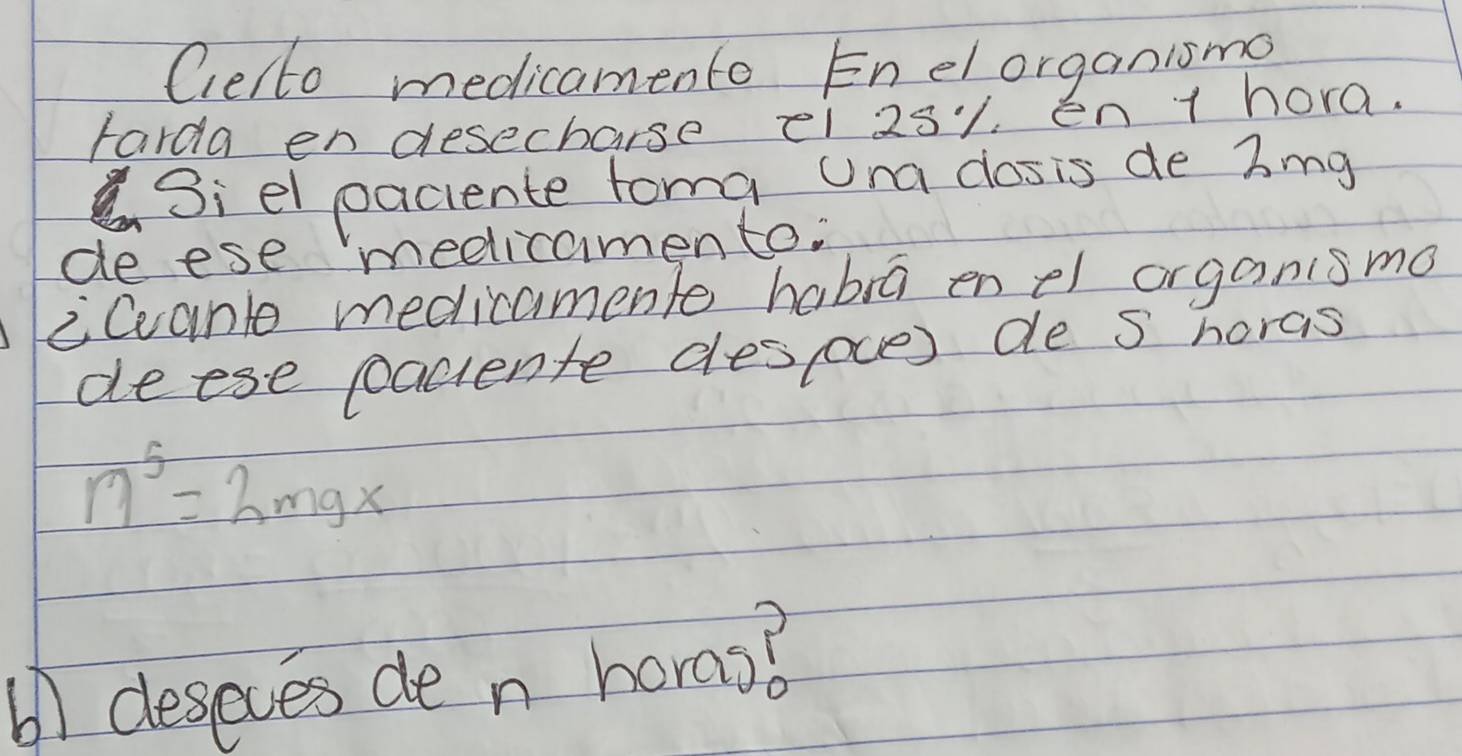 Cierto medicamento En el organismo
tarda en desecharse el 25% en 1 hora.
Si el paciente toma una dosis de 2mg
de ese medicamento.
¿Cuanto medicamento habrá en el organismo
de ese paciente despues de 5 horas
n⁵=2mgx
b) después de n horas?